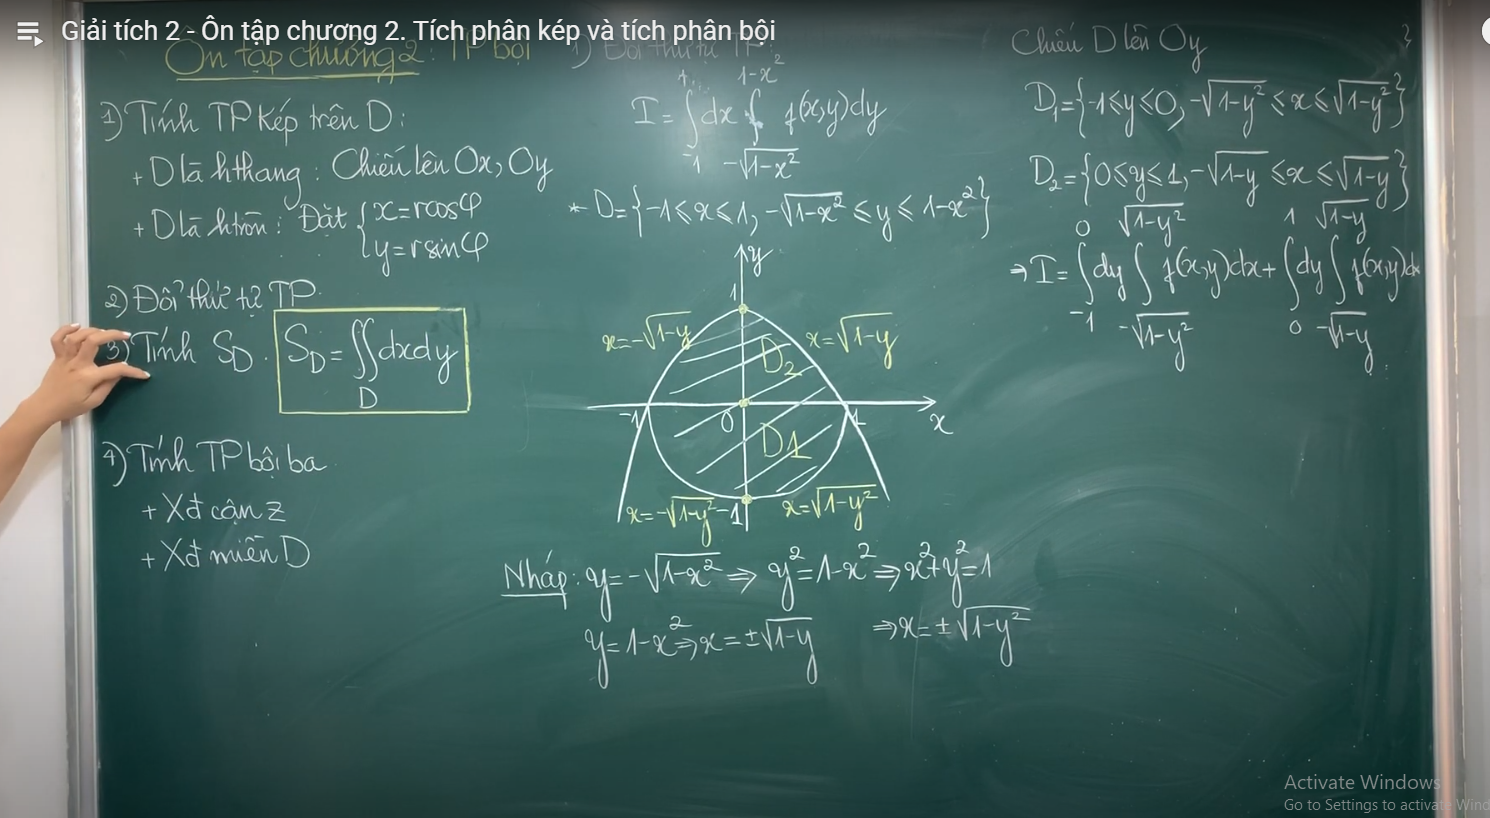 Giải tích 2 - Ôn tập chương 2. Tích phân kép và tích phân bội
Ôn tập chương 2: TP bội
1) Tính TP kép trên D:
+ D là hthang: Chiếu lên Ox, Oy
+ D là htròn: Đặt { x = rcosφ
y = rsinφ
2) Đổi thứ tự TP.
3) Tính S_D. S_D = ∬_D dxdy
4) Tính TP bội ba
+ Xđ cận z
+ Xđ miền D
1) Đổi thứ tự TP:
I = ∫_{-1}^{1} dx ∫_{-√(1-x²)}^{1-x²} f(x,y)dy
* D = {-1 ≤ x ≤ 1, -√(1-x²) ≤ y ≤ 1-x²}
y
1
x = -√(1-y)
x = √(1-y)
D2
-1
0
1
x
D1
x = -√(1-y²)
-1
x = √(1-y²)
Nháp: y = -√(1-x²) ⇒ y² = 1-x² ⇒ x²+y² = 1
y = 1-x² ⇒ x = ±√(1-y) ⇒ x = ±√(1-y²)
Chiếu D lên Oy
D₁ = {-1 ≤ y ≤ 0, -√(1-y²) ≤ x ≤ √(1-y²)}
D₂ = {0 ≤ y ≤ 1, -√(1-y) ≤ x ≤ √(1-y)}
⇒ I = ∫_{-1}^{0} dy ∫_{-√(1-y²)}^{√(1-y²)} f(x,y)dx + ∫_{0}^{1} dy ∫_{-√(1-y)}^{√(1-y)} f(x,y)dx
Activate Windows
Go to Settings to activate Wind